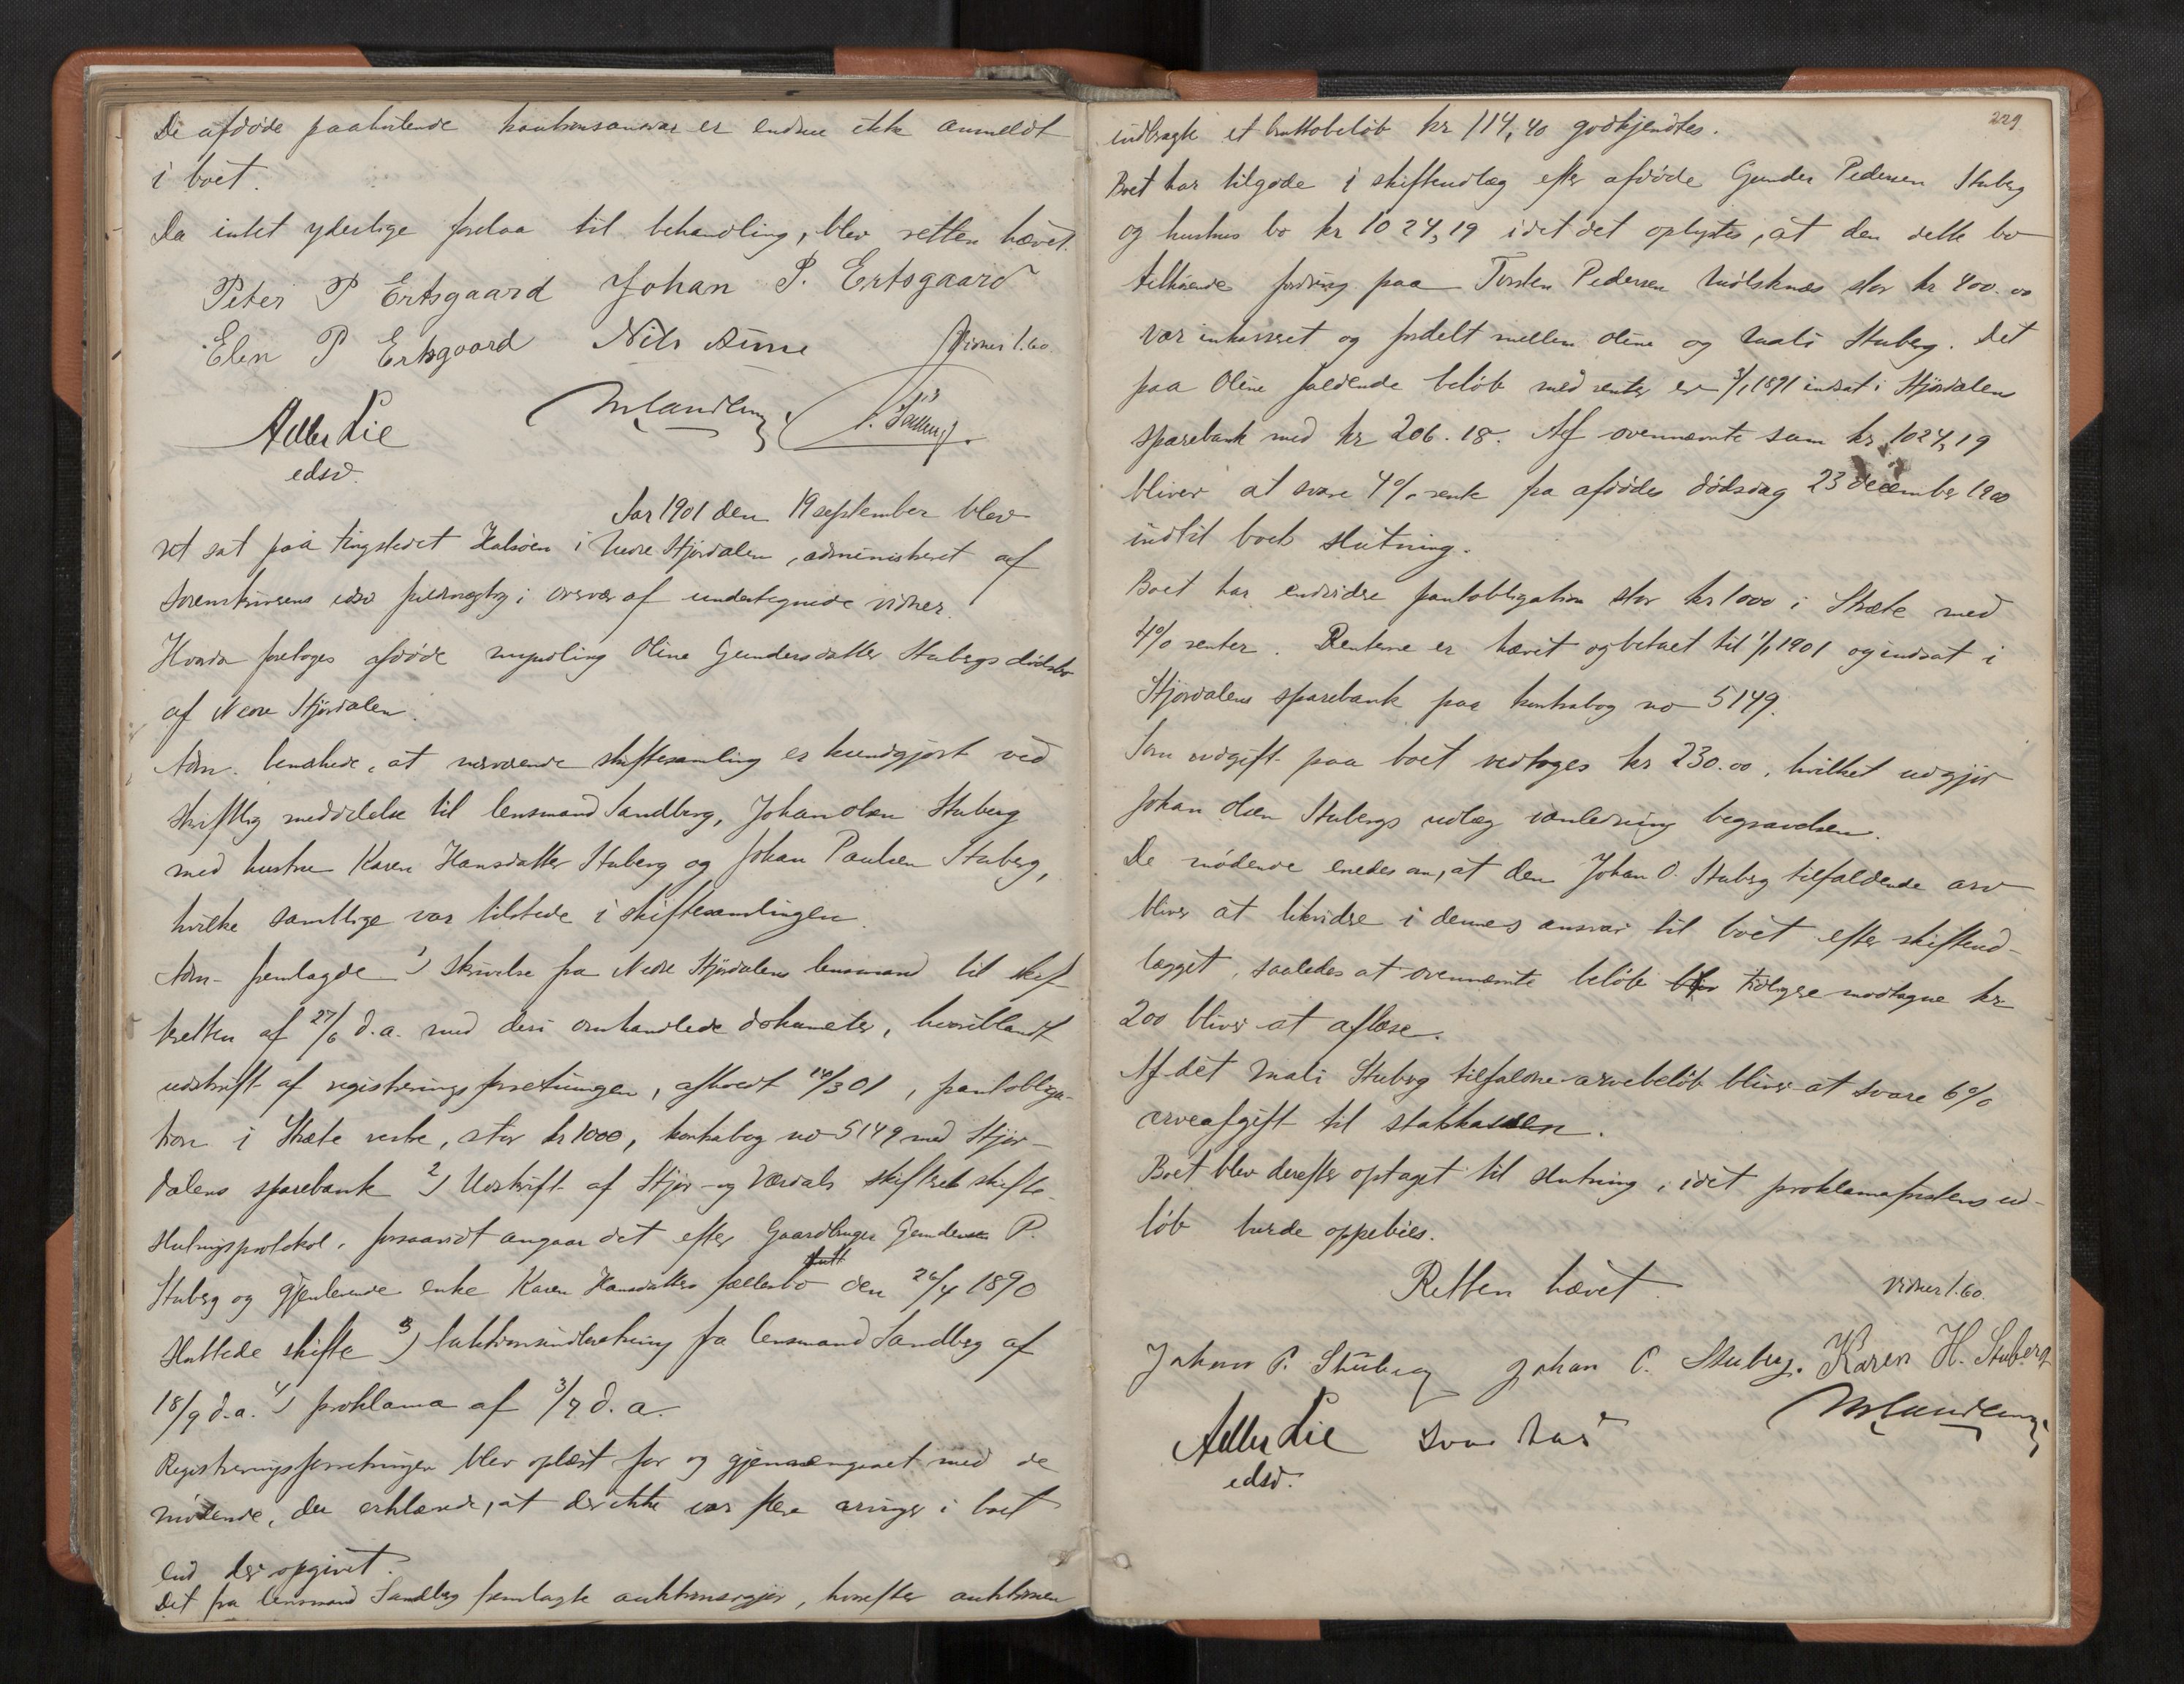 De afdøde paahvilende kautionsansvar er endnu ikke anmeldt
i boet.
Da intet yderlige forelaa til behandling, blev retten hævet.
Peter P Ertsgaard Johan P. Ertsgaard
Elen P Ertsgaard Nils
Vidner 1.60.
Adler Lie
edsv.
Aar 1901 den 19 september blev
ret sat paa tingstedet Halsøen i Nedre Stjørdalen, administreret af
sorenskriverens edsv fuldmægtig i overvær af undertegnede vidner.
Hvorda foretoges afdøde myndling Oline Gundersdatter Stubergs dødsbo
af Nedre Stjørdalen.
Adm. bemærkede, at nærværende skiftesamling er kundgjort ved
skriftlig meddelelse til lensmand Sandberg, Johan Olsen Stuberg
med hustru Karen Hansdatter Stuberg og Johan Paulsen Stuberg,
hvilke samtlige var tilstede i skiftesamlingen.
Adm. fremlagde 1) skrivelse fra Nedre Stjørdalens lensmand til skif-
teretten af 27/6 d.a. med deri omhandlede dokumenter, hvoriblandt
udskrift af registreringsforretningen, afholdt 14/3 01, pantobliga-
tion i Skrete vestre, stor kr 1000, kontrabog no 5149 med Stjør-
dalens sparebank 2) Udskrift af Stjør- og Værdals skifterets skifte-
slutningsprotokol, forsaavidt angaar det efter Gaardbruger Gunder P.
Stuberg og gjenlevende enke Karen Hansdatters fællesbo den 26/4 1890
sluttede skifte 3) Auktionsindberetning fra lensmand Sandberg af
18/9 d.a. 4) proklama af 3/7 d.a.
Registreringsforretningen blev oplæst for og gjennemgaaet med de
mødende, der erklærede, at der ikke var flere eringer i boet
end der opgivet.
Det fra lensmand Sandberg fremlagte auktionsopgjør, hvorefter auktionen
229
indbragte et bruttobeløb kr 114,40 godkjendtes.
Boet har tilgode i skifteudlæg efter afdøde Gunder Pedersen Stuberg
og hustrus bo kr 1024,19 idet det oplystes, at den dette bo
tilhørende fordring paa Torsten Pedersen Mølsknæs stor kr 400.00
var inkasseret og fordelt mellem Oline og Mali Stuberg. Det
paa Oline faldende beløb med renter er 3/1 1891 indsat i Stjørdalens
sparebank med kr 206.18. Af ovennævnte sum kr 1024,19
bliver at svare 4% rente fra afdødes dødsdag 23 december 1900
indtil boets slutning.
Boet har endvidre pantobligation stor kr 1000 i Skrete med
4% renter. Renterne er hævet og betalt til 1/1 1901 og indsat i
Stjørdalens sparebank paa kontrabog no 5149.
Som udgift paa boet vedtoges kr 230.00, hvilket udgjør
Johan Olsen Stubergs udlæg i anledning begravelsen.
De mødende enedes om, at den Johan O. Stuberg tilfaldende arv
bliver at likvidere i dennes ansvar til boet efter skifteud-
lægget, saaledes at ovennævnte beløb tidligere modtagne kr
200 bliver at aflæse.
Af det Mali Stuberg tilfaldne arvebeløb bliver at svare 6%
arveafgift til statskassen.
Boet blev derefter optaget til slutning, idet proklamafristens ud-
løb burde oppebies.
Retten hævet.
Vidner 1.60.
Johan P. Stuberg Johan O. Stuberg. Karen H. Stuberg
Adler Lie
edsv.